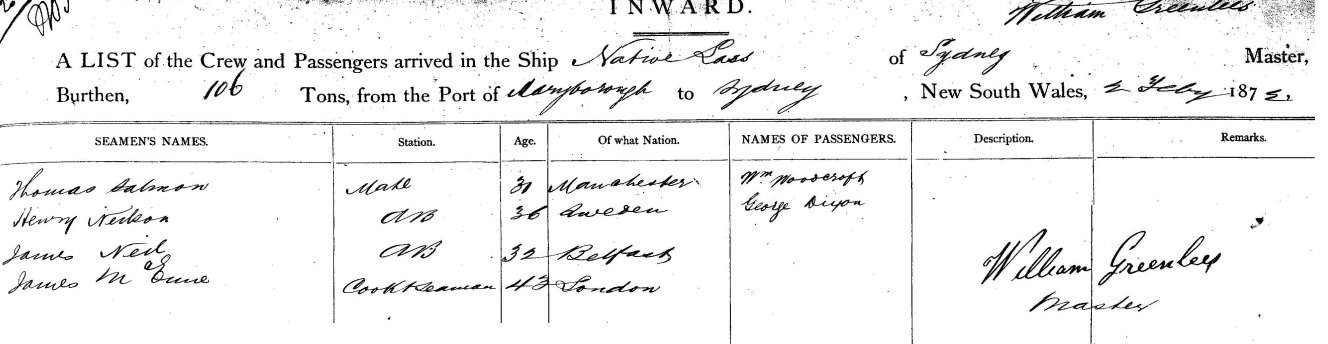 INWARD.
William Greenlees
A LIST of the Crew and Passengers arrived in the Ship Native Lass of Sydney Master,
Burthen, 106 Tons, from the Port of Maryborough to Sydney , New South Wales, 2 Feby 1872.
SEAMEN'S NAMES. Station. Age. Of what Nation. NAMES OF PASSENGERS. Description. Remarks.
Thomas Salmon Mate 30 Manchester Wm Woodcroft
Henry Neilson AB 36 Sweden George Dixon
James Neil AB 32 Belfast
James Cook & Seaman 43 London
William Greenlees
Master